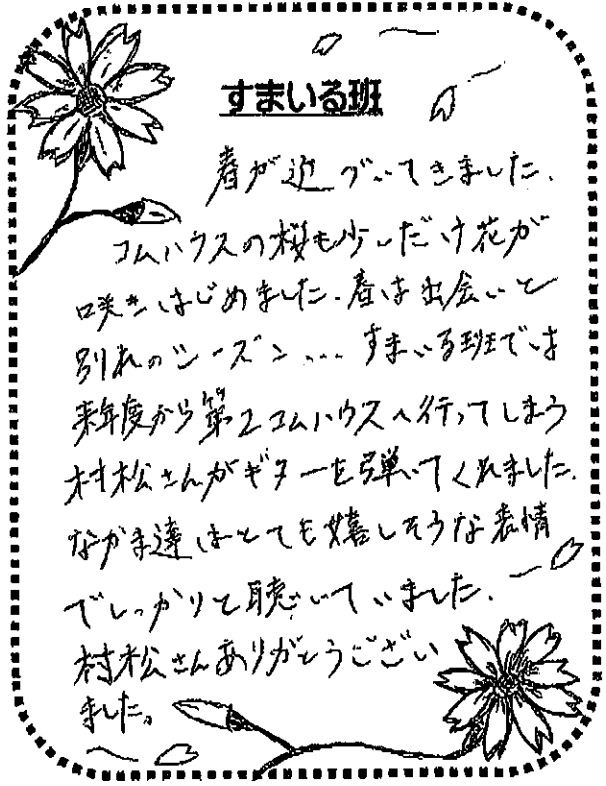 すまいる班
春が近づいてきました.
コムハウスの桜も少しだけ花が
咲きはじめました.春は出会いと
別れのシーズン...すまいる班では
来年度から第2コムハウスへ行ってしまう
村松さんがギターを弾いてくれました.
なかま達はとても嬉しそうな表情
でしっかりと聴いていました.
村松さんありがとうござい
ました。